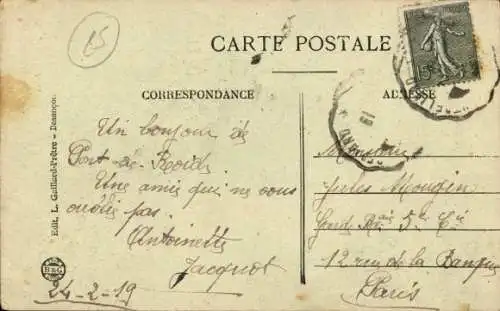 15
CARTE POSTALE
CORRESPONDANCE
ADRESSE
Un bonjour de
Port-de-Roide
Une amie qui ne vous
oublie pas.
Antoinette
Jacquot
24-2-19
Monsieur
Jules Mougin
5e Cie
12 rue de la Banque
Paris
Edit. L. Gaillard-Prêtre - Besançon
B&G
15c